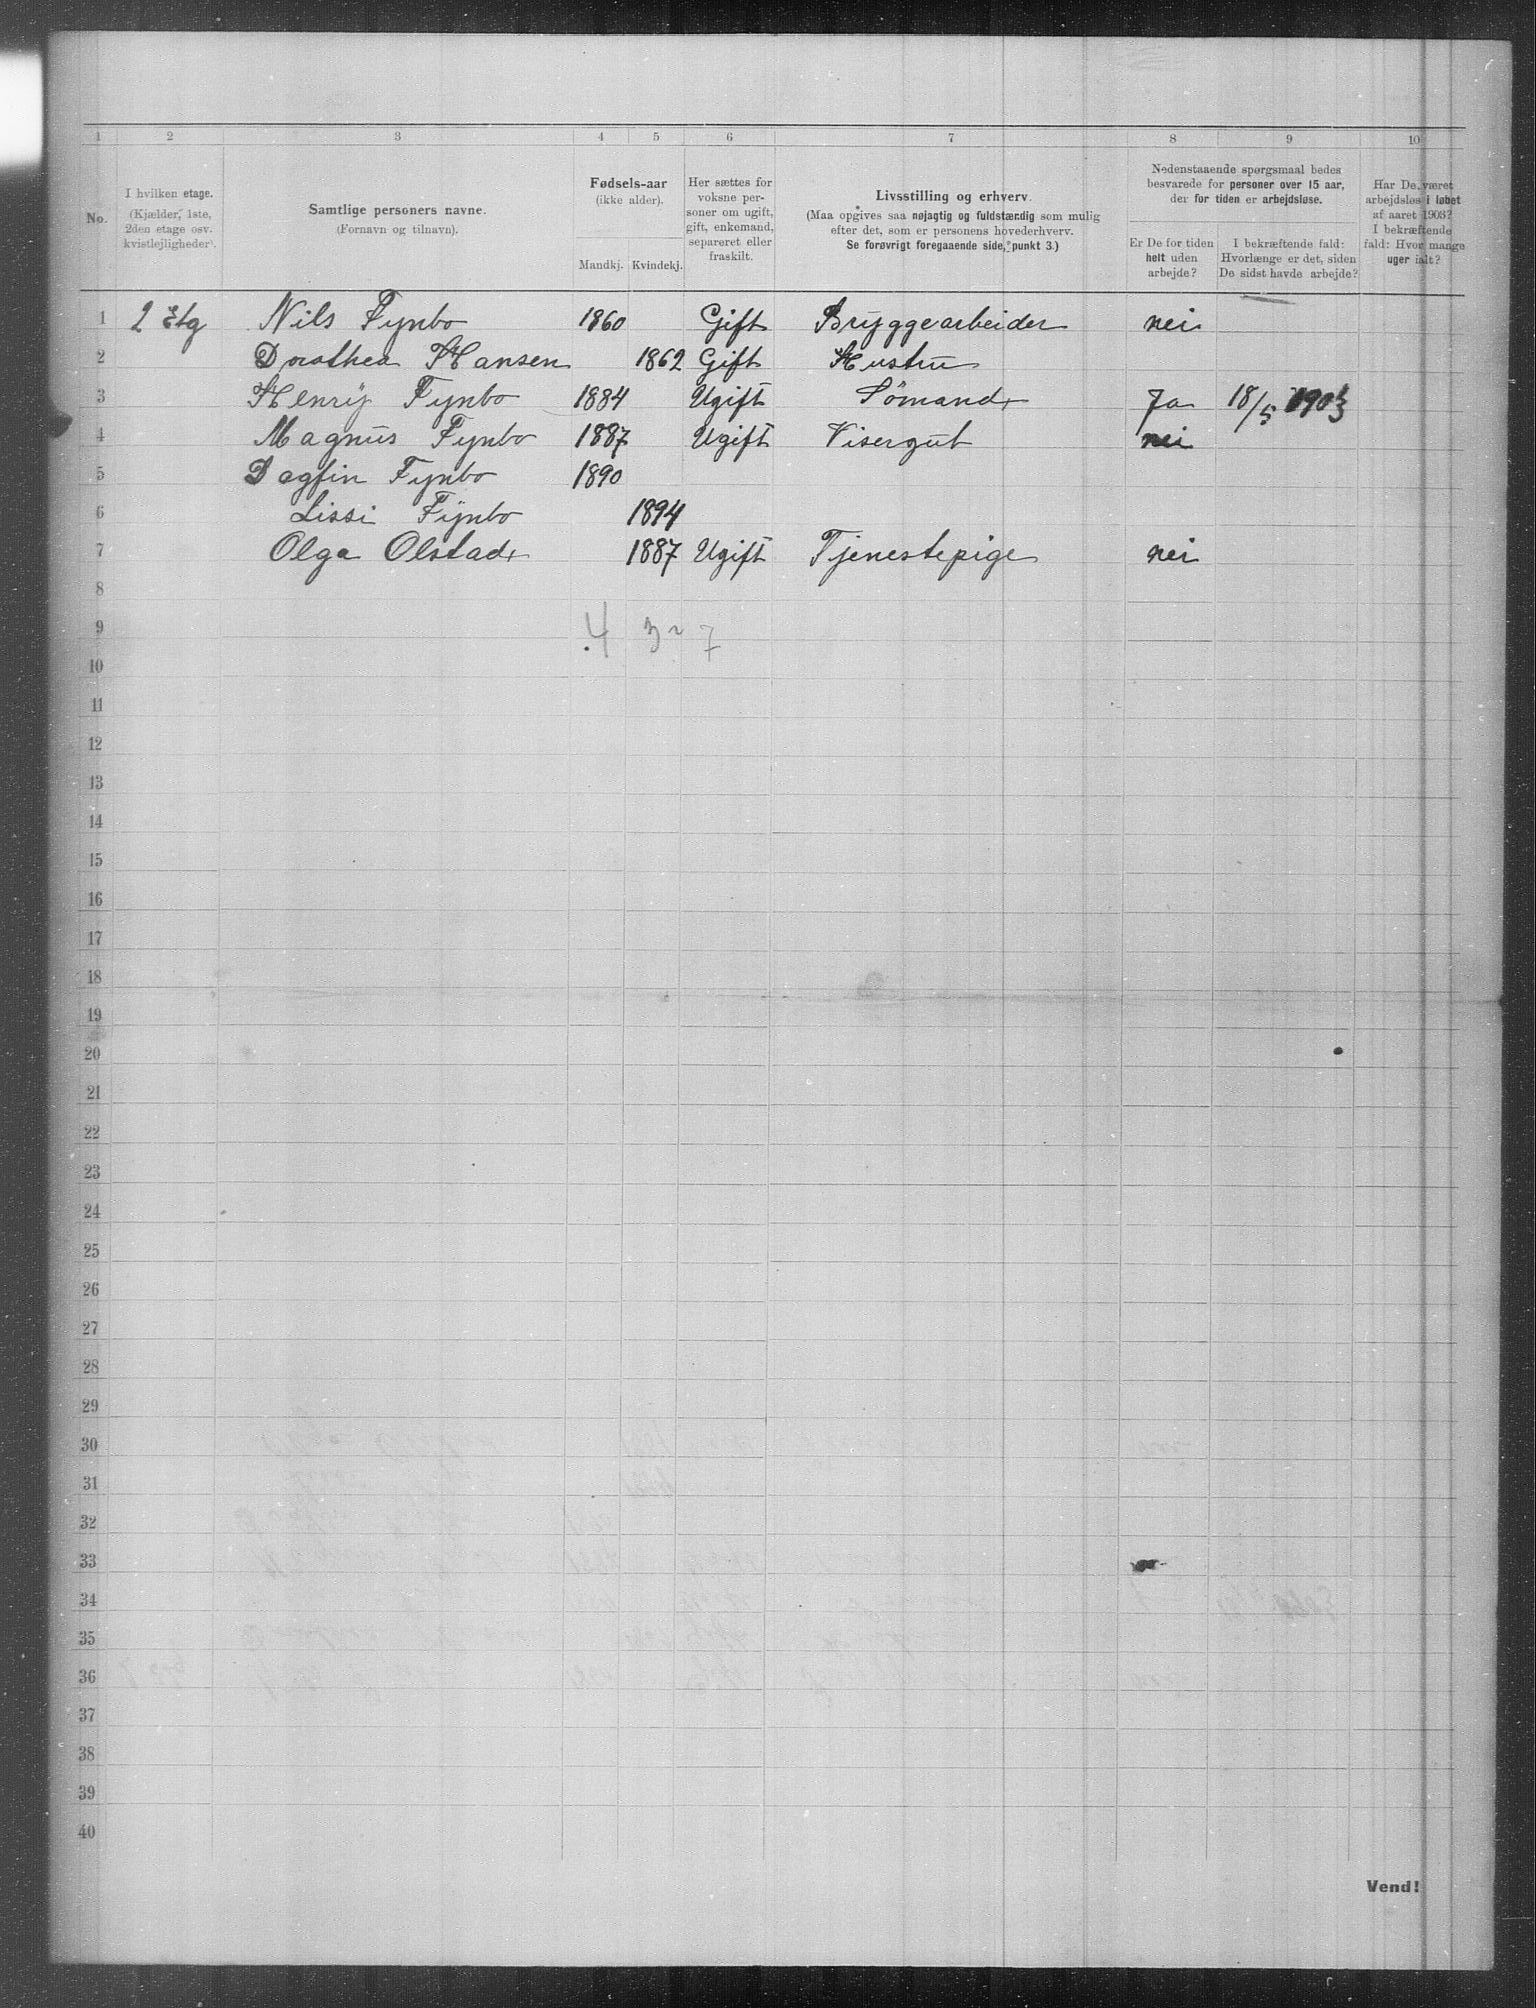 1 2 3 4 5 6 7 8 9 10
No.
I hvilken etage.
(Kjælder, 1ste,
2den etage osv.
kvistlejligheder).
Samtlige personers navne.
(Fornavn og tilnavn).
Fødsels-aar
(ikke alder).
Mandkj. Kvindekj.
Her sættes for
voksne per-
soner om ugift,
gift, enkemand,
separeret eller
fraskilt.
Livsstilling og erhverv.
(Maa opgives saa nøjagtig og fuldstændig som mulig
efter det, som er personens hovederhverv.
Se forøvrigt foregaaende side, punkt 3.)
Nedenstaaende spørgsmaal bedes
besvarede for personer over 15 aar,
der for tiden er arbejdsløse.
Er De for tiden
helt uden
arbejde?
I bekræftende fald:
Hvorlænge er det, siden
De sidst havde arbejde?
Har De været
arbejdsløs i løbet
af aaret 1903?
I bekræftende
fald: Hvor mange
uger ialt?
1 2 Etg Nils Fynbo 1860 Gift Bryggearbeider nei
2 Dorothea Hansen 1862 Gift Hustru
3 Henry Fynbo 1884 Ugift Sömand Ja 18/5 1903
4 Magnus Fynbo 1887 Ugift Visergut nei
5 Dagfin Fynbo 1890
6 Lissi Fynbo 1894
7 Olga Olstad 1887 Ugift Tjenestepige nei
8
9 4 3 7
10
11
12
13
14
15
16
17
18
19
20
21
22
23
24
25
26
27
28
29
30
31
32
33
34
35
36
37
38
39
40
Vend!